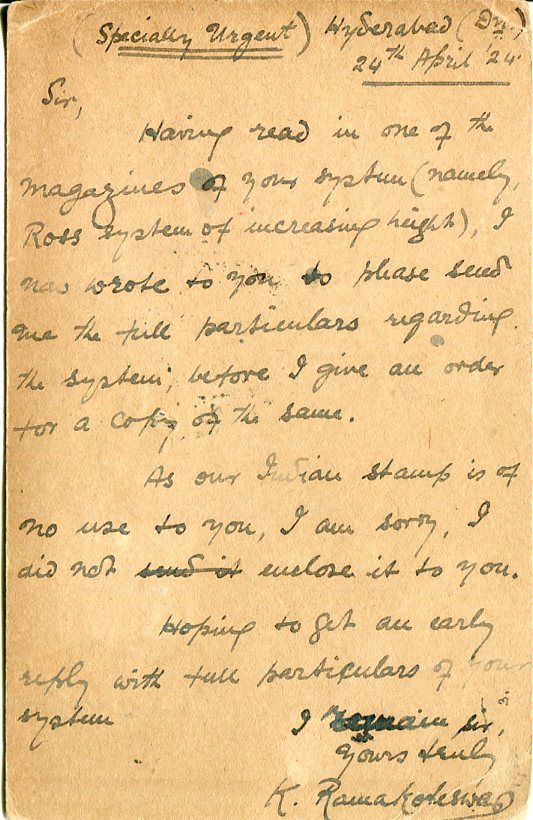 (Specially Urgent) Hyderabad (Dn.)
24th April '24
Sir,
Having read in one of the
magazines of your system (namely,
Ross system of increasing height), I
now wrote to you to please send
me the full particulars regarding
the system, before I give an order
for a copy of the same.
As our Indian stamp is of
no use to you, I am sorry, I
did not send it enclose it to you.
Hoping to get an early
reply with full particulars of your
system
I remain sir,
Yours truly
K. Ramakoteswar